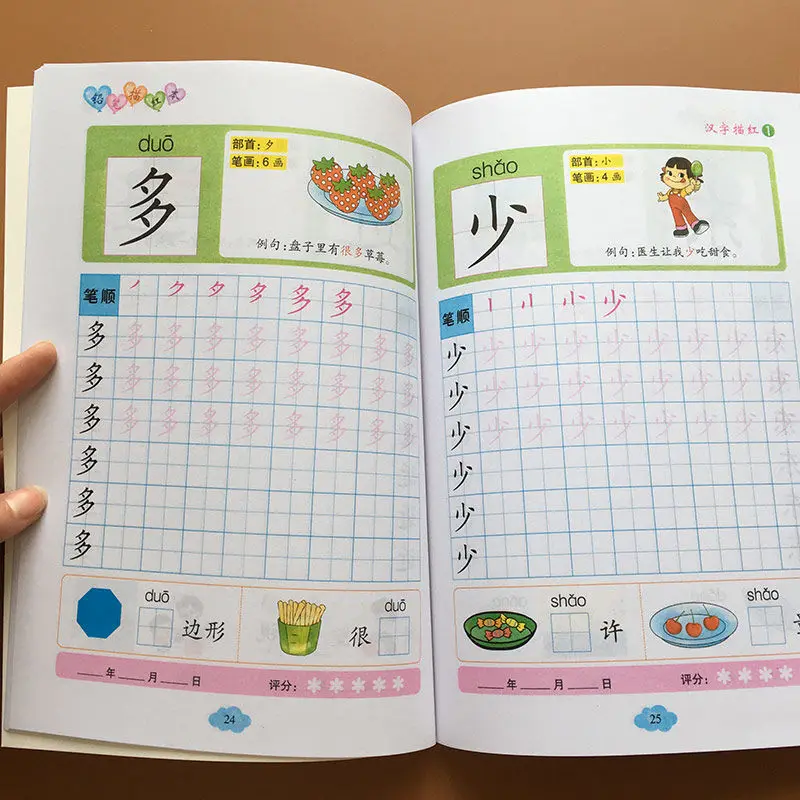 铅笔描红
duō
多
部首：夕
笔画：6画
例句：盘子里有很多草莓。
笔顺 夕 多
多 多 多 多 多 多 多 多 多
多 多 多 多 多 多 多 多 多
多 多 多 多 多 多 多 多 多
多
多
多
duō
边形
duō
很
年 月 日 评分：
24
汉字描红 1
shǎo
少
部首：小
笔画：4画
例句：医生让我少吃甜食。
笔顺 小 少
少 少 少 少 少 少 少 少 少
少 少 少 少 少 少 少 少 少
少 少 少 少 少 少 少 少 少
少
少
少
shǎo
许
shǎo
年 月 日 评分：
25